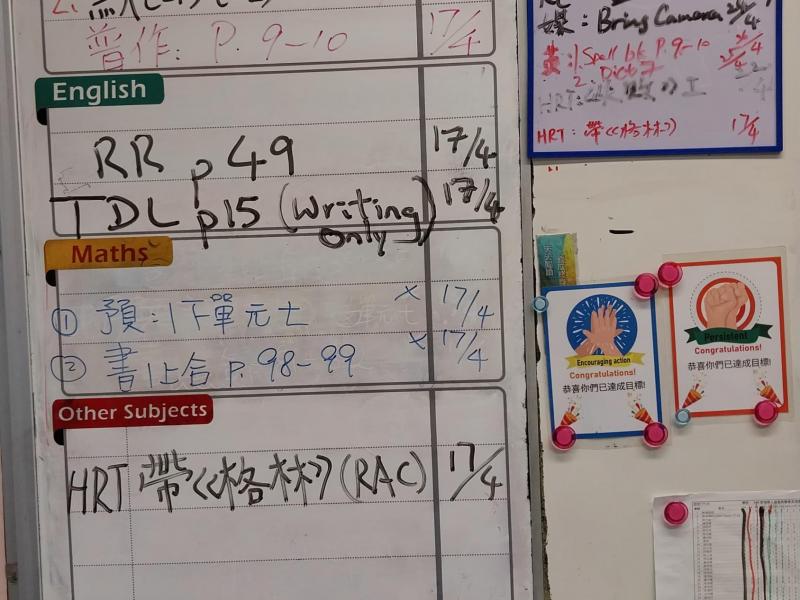 普作: P.9-10 17/4
English
RR p49 17/4
TDL p15 (Writing only) 17/4
Maths
① 預:1下單元七 x 17/4
② 書1上合 P.98-99 x 17/4
Other Subjects
HRT 帶《格林》(RAC) 17/4
媒: Bring Camera 24/4
英: 1. Spell bk P.9-10 24/4
2. Dict 7 25/4
HRT: 帶《格林》 17/4
Encouraging action
Congratulations!
恭喜你們已達成目標!
Persistent
Congratulations!
恭喜你們已達成目標!